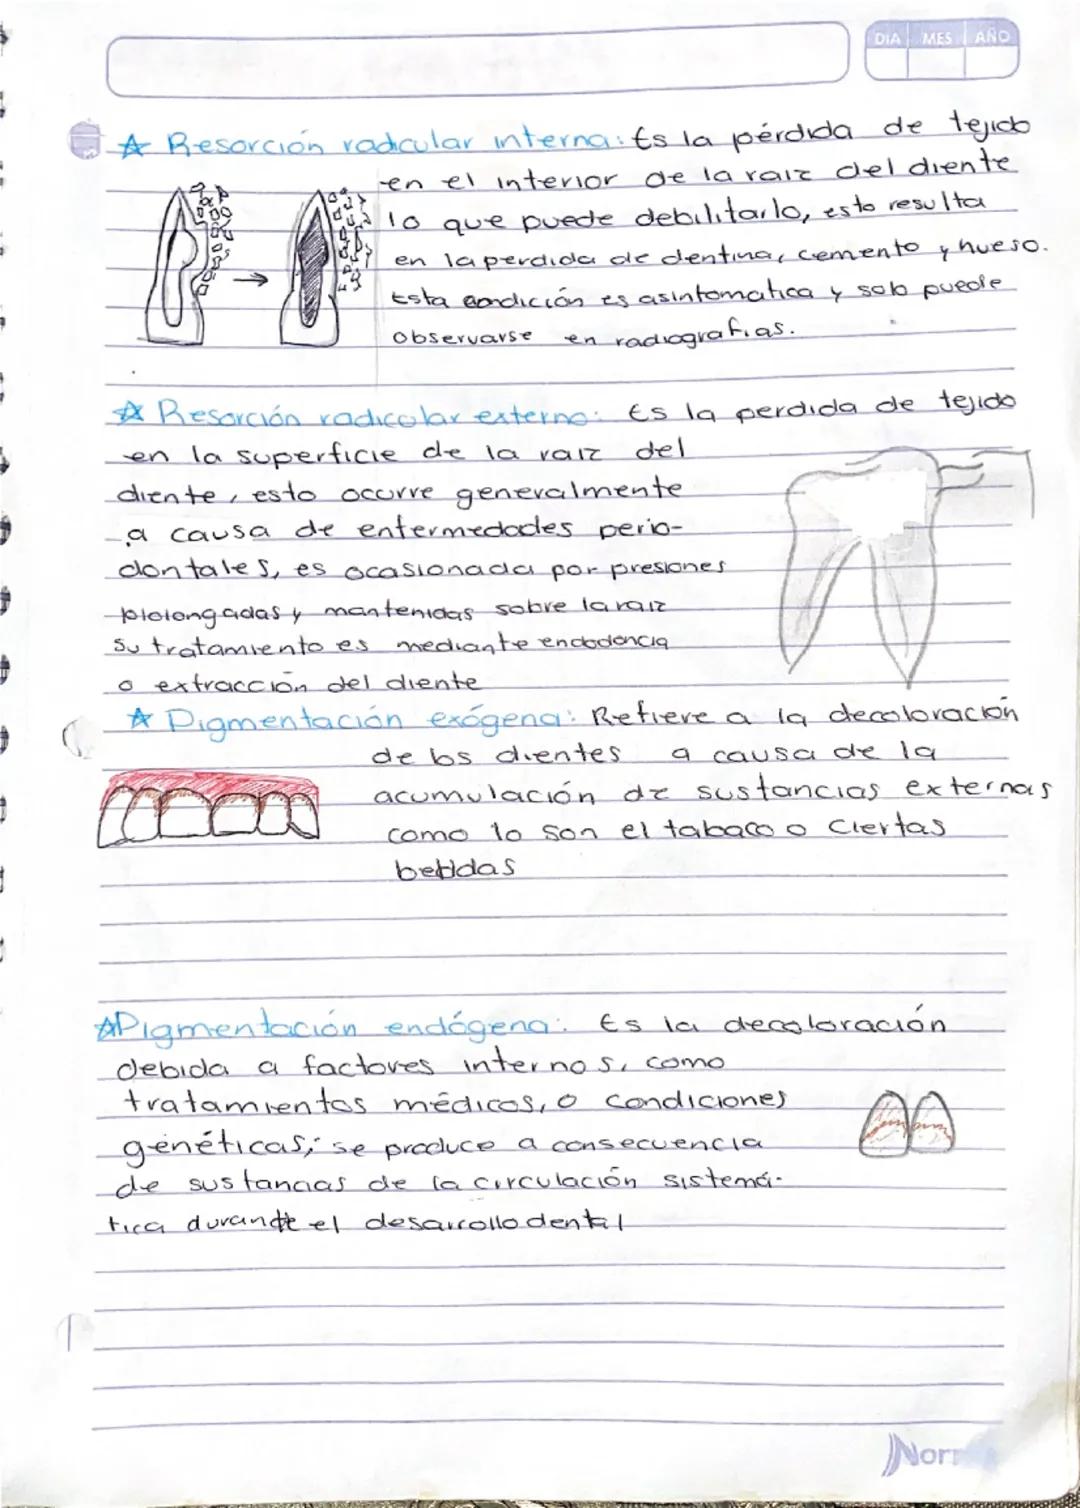 DIA MES AÑO
☆ Resorción radicular interna: Es la pérdida de tejido
en el interior de la raiz del diente
lo que puede debilitarlo, esto resulta
en la perdida de dentina, cemento y hueso.
Esta condición es asintomatica y solo puede
observarse en radiografias.
☆ Resorción radicular externa: Es la perdida de tejido
en la superficie de la raiz del
diente, esto ocurre generalmente
a causa de enfermedades perio-
dontales, es ocasionada por presiones
prolongadas y mantenidas sobre la raiz
su tratamiento es mediante endodoncia
o extracción del diente
☆ Pigmentación exógena: Refiere a la decoloración
de los dientes a causa de la
acumulación de sustancias externas
como lo son el tabaco o ciertas
bebidas
☆ Pigmentación endógena: Es la decoloración
debida a factores internos, como
tratamientos médicos, o condiciones
genéticas; se produce a consecuencia
de sustancias de la circulación sistemá-
tica durante el desarrollo dental